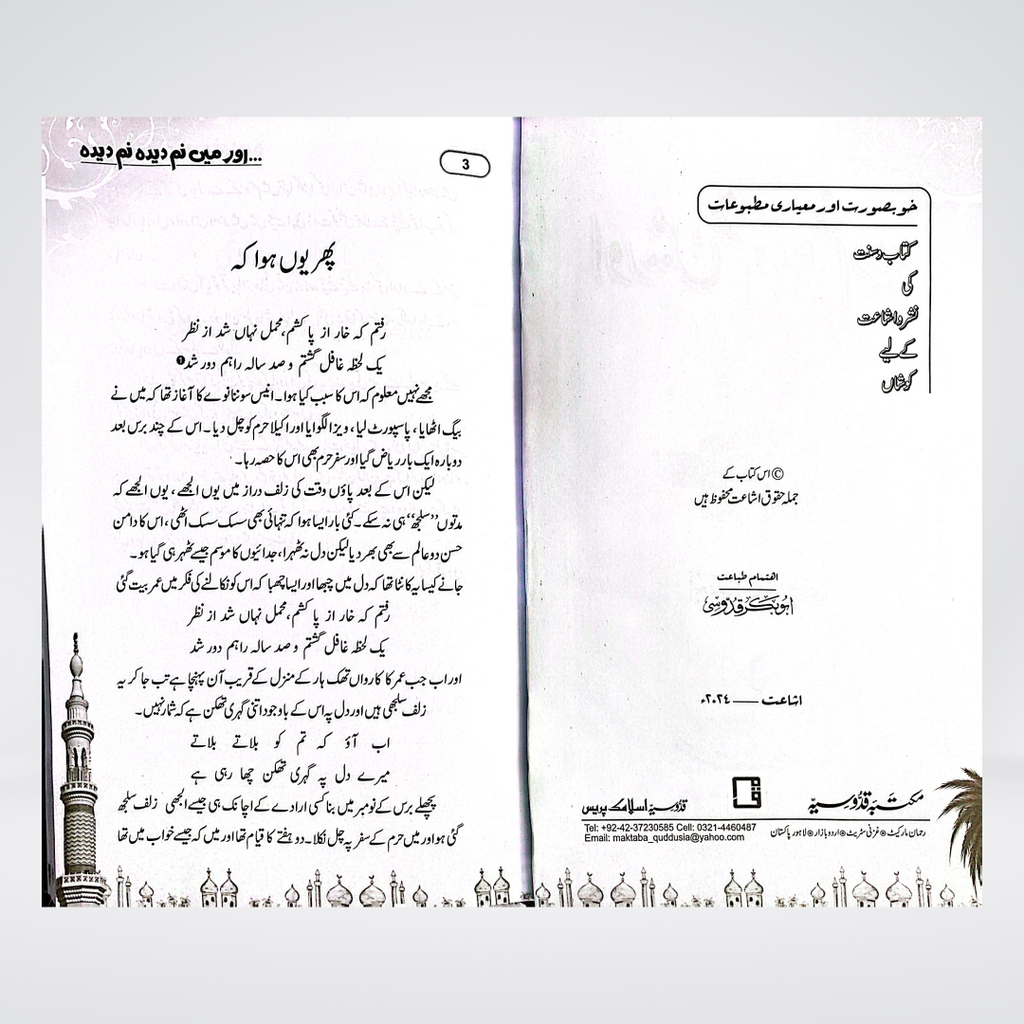 خوبصورت اور معیاری مطبوعات
کتاب و سنت
کی
نشر و اشاعت
کے لیے
کوشاں
© اس کتاب کے
جملہ حقوق اشاعت محفوظ ہیں
اهتمام طباعت
ابوبکر قدوسی
اشاعت —— ۲۰۲٤ء
مکتبہ قدوسیہ
رحمان مارکیٹ ❁ غزنی سٹریٹ ❁ اردو بازار ❁ لاہور پاکستان
قدوسیہ اسلامک پریس
Tel: +92-42-37230585 Cell: 0321-4460487
Email: maktaba_quddusia@yahoo.com
3
...اور میں نم دیدہ نم دیدہ
پھر یوں ہوا کہ
رفتم کہ خار از پا کشم، محمل نہاں شد از نظر
یک لحظہ غافل گشتم و صد سالہ راہم دور شد ❶
مجھے نہیں معلوم کہ اس کا سبب کیا ہوا۔ انیس سو ننانوے کا آغاز تھا کہ میں نے
بیگ اٹھایا، پاسپورٹ لیا، ویزا لگوایا اور اکیلا حرم کو چل دیا۔ اس کے چند برس بعد
دوبارہ ایک بار ریاض گیا اور سفر حرم بھی اس کا حصہ رہا۔
لیکن اس کے بعد پاؤں وقت کی زلف دراز میں یوں الجھے، یوں الجھے کہ
مدتوں ’’سلجھ‘‘ ہی نہ سکے۔ کئی بار ایسا ہوا کہ تنہائی بھی سسک سسک اٹھی، اس کا دامن
حسن دو عالم سے بھی بھر دیا لیکن دل نہ ٹھہرا، جدائیوں کا موسم جیسے ٹھہر ہی گیا ہو۔
جانے کیسا یہ کانٹا تھا کہ دل میں چبھا اور ایسا چھپا کہ اس کو نکالنے کی فکر میں عمر بیت گئی
رفتم کہ خار از پا کشم، محمل نہاں شد از نظر
یک لحظہ غافل گشتم و صد سالہ راہم دور شد
اور اب جب عمر کا کارواں تھک ہار کے منزل کے قریب آن پہنچا ہے تب جا کر یہ
زلف سلجھی ہیں اور دل پہ اس کے باوجود اتنی گہری تھکن ہے کہ شمار نہیں۔
اب آؤ کہ تم کو بلاتے بلاتے
میرے دل پہ گہری تھکن چھا رہی ہے
پچھلے برس کے نومبر میں بنا کسی ارادے کے اچانک ہی جیسے الجھی زلف سلجھ
گئی ہو اور میں حرم کے سفر پہ چل نکلا۔ دو ہفتے کا قیام تھا اور میں کہ جیسے خواب میں تھا